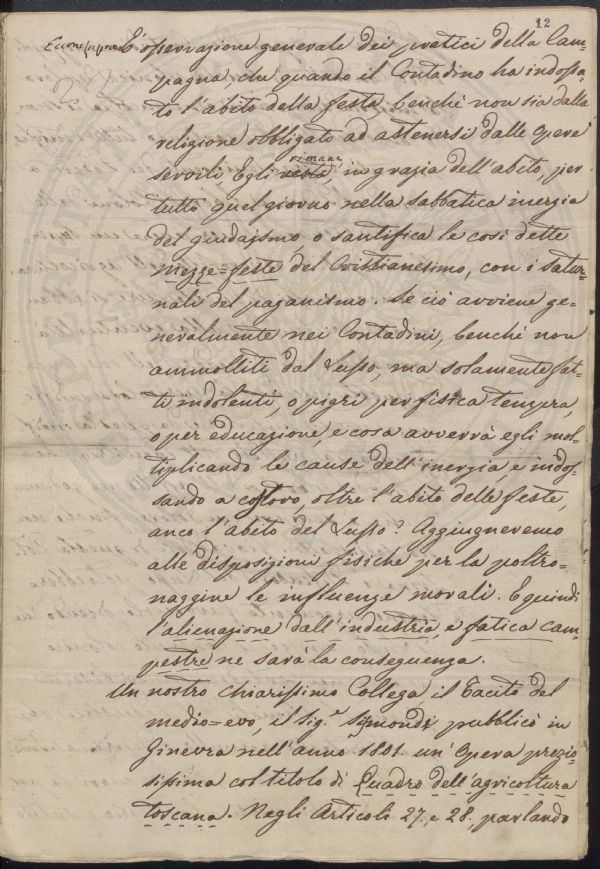 12
È operazione generale dei pratici della Cam=
pagna che quando il Contadino ha indossa=
to l'abito della festa, benchè non sia dalla
religione obbligato ad astenersi dalle opere
servili Egli resta rimane, in grazia dell'abito, per
tutto quel giorno nella sabbatica inerzia
del giudaismo, o santifica le così dette
mezze=feste del Cristianesimo, con i Satur=
nali del paganismo. Se ciò avviene ge=
neralmente nei Contadini, benchè non
ammolliti dal Lusso, ma solamente fat=
ti indolenti, o pigri per fisica tempra,
o per educazione, e cosa avverrà egli mol=
tiplicando le cause dell'inerzia, e indos=
sando a costoro, oltre l'abito delle feste,
anco l'abito del Lusso? Aggiugneremo
alle disposizioni fisiche per la poltro=
naggine le influenze morali. E quindi
l'alienazione dall'industria, e fatica cam=
pestre ne sarà la conseguenza.
Un nostro chiarissimo Collega, il Tacito del
medio=evo, il Sig.r Sismondi pubblicò in
Ginevra nell'anno 1801. un'Opera prezio=
sissima col titolo di Quadro dell'agricoltura
toscana. Negli Articoli 27. e 28. parlando